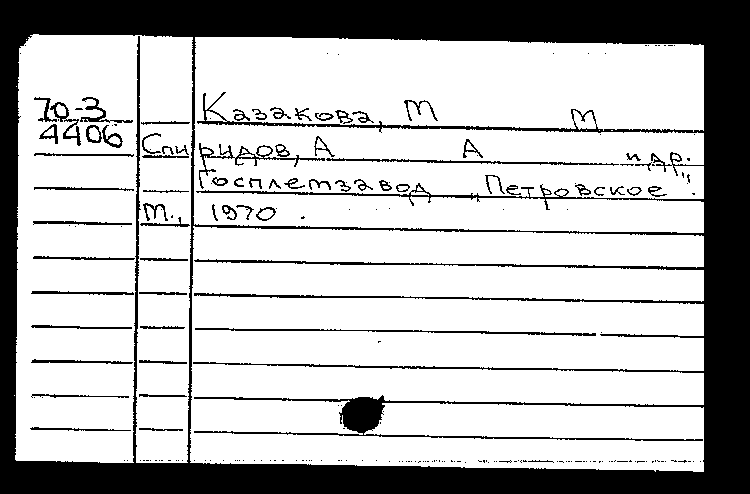 70-3 Казакова, М М
4406 Спиридов, А А и др.
Госплемзавод „Петровское".
М., 1970.